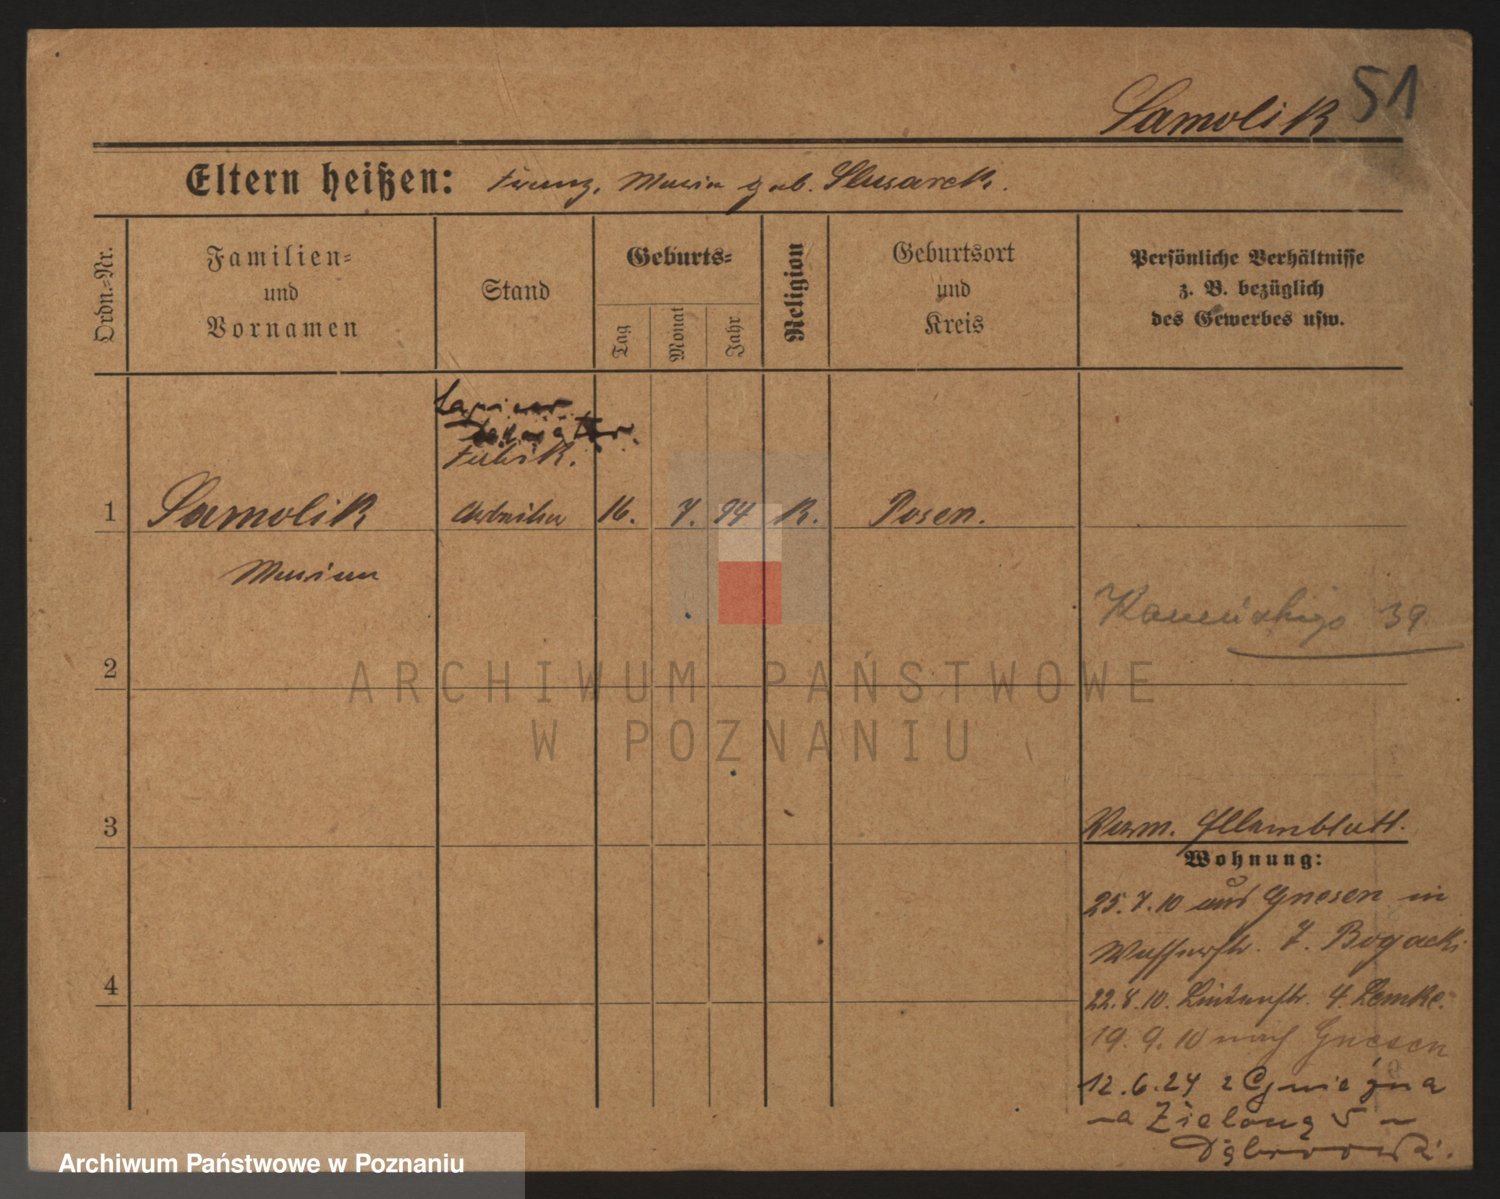 Samolik 51
Eltern heißen: Franz, Maria geb. Slusarek.
Ordn.-Nr.
Familien-
und
Vornamen
Stand
Geburts-
Tag
Monat
Jahr
Religion
Geburtsort
und
Kreis
Persönliche Verhältnisse
z. B. bezüglich
des Gewerbes usw.
Fabrik.
1 Samolik Arbeiter 16. 7. 94 K. Posen.
Marian
39
2
ARCHIWUM PAŃSTWOWE
W POZNANIU
3
Verm. Elternblatt.
Wohnung:
25.7.10 aus Gnesen in
Wasserstr. 7. Bogacki
4
22.8.10. Lindenstr. 4. Lemke.
19.9.10 nach Gnesen
12.6.24 z Gniezna
na Zieloną 5
Dąbrowski.
Archiwum Państwowe w Poznaniu